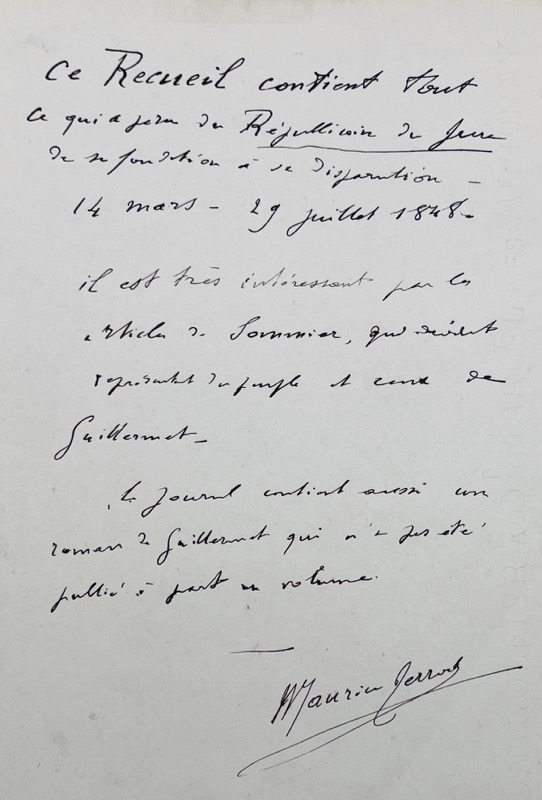 Ce Recueil contient tout
ce qui a paru du Républicain du Jura
de sa fondation à sa disparution –
14 mars – 29 juillet 1848.
il est très intéressant par les
articles de Sommier, qui devint
représentant du peuple et ceux de
Guillermet –
Le journal contient aussi un
roman de Guillermet qui n'a pas été
publié à part en volume.
Maurice Perrod